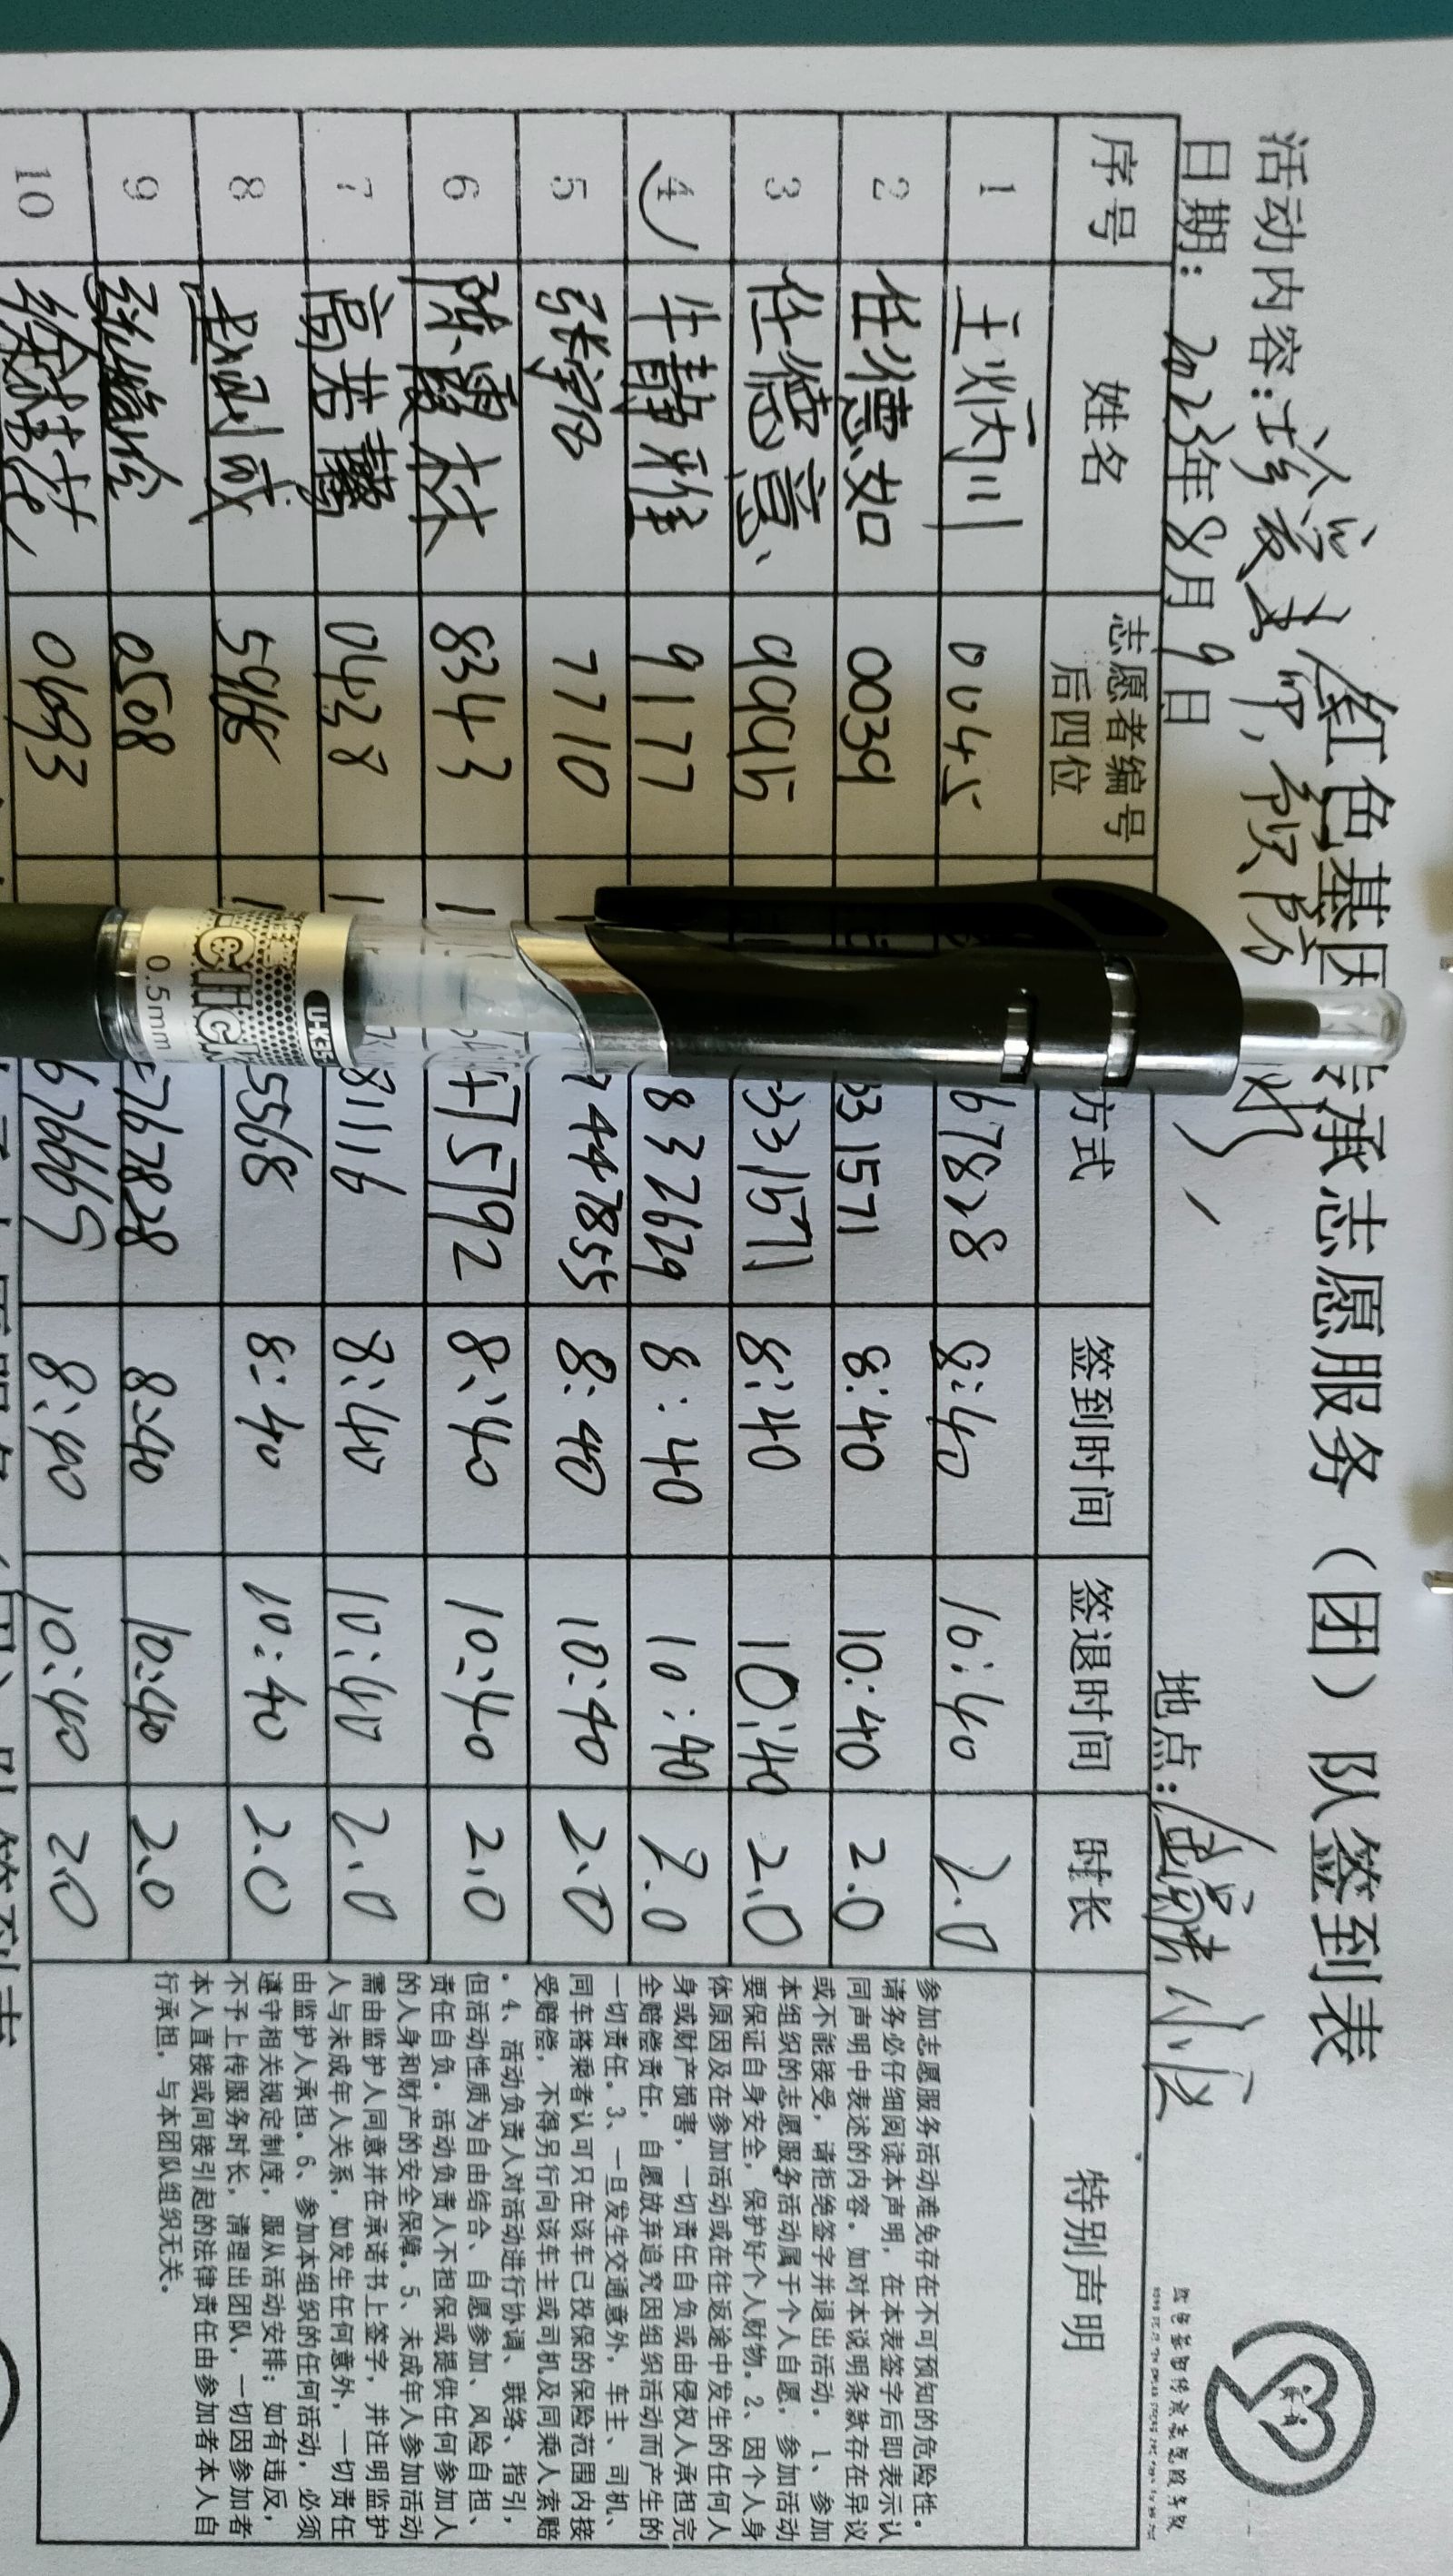 红色基因传承志愿服务（团）队签到表
活动内容：珍爱生命，预防
日期：2023年8月9日
地点：
序号 姓名 志愿者编号后四位 方式 签到时间 签退时间 时长 特别声明
1 王炳川 0045 67828 8:40 10:40 2.0
2 任德如 0039 331571 8:40 10:40 2.0
3 任德意 9995 331571 8:40 10:40 2.0
4 牛静雅 9177 837629 8:40 10:40 2.0
5 7710 7447855 8:40 10:40 2.0
6 陈霞林 8343 47592 8:40 10:40 2.0
7 高若馨 0428 81116 8:40 10:40 2.0
8 赵永成 5968 5568 8:40 10:40 2.0
9 0508 767828 8:40 10:40 2.0
10 0693 676669 8:40 10:40 2.0
参加志愿服务活动难免存在不可预知的危险性。
请务必仔细阅读本声明，在本表签字后即表示认
同声明中表述的内容。如对本说明条款存在异议
或不能接受，请拒绝签字并退出活动。1、参加
本组织的志愿服务活动属于个人自愿，参加活动
要保证自身安全，保护好个人财物。2、因个人身
体原因及在参加活动或在往返途中发生的任何人
身或财产损害，一切责任自负或由侵权人承担完
全赔偿责任，自愿放弃追究因组织活动而产生的
一切责任。3、一旦发生交通意外，车主、司机、
同车搭乘者认可只在该车已投保的保险范围内接
受赔偿，不得另行向该车主或司机及同乘人索赔
。4、活动负责人对活动进行协调、联络、指引，
但活动性质为自由结合、自愿参加、风险自担、
责任自负。活动负责人不担保或提供任何参加人
的人身和财产的安全保障。5、未成年人参加活动
需由监护人同意并在承诺书上签字，并注明监护
人与未成年人关系，如发生任何意外，一切责任
由监护人承担。6、参加本组织的任何活动，必须
遵守相关规定制度，服从活动安排；如有违反，
不予上传服务时长，清理出团队，一切因参加者
本人直接或间接引起的法律责任由参加者本人自
行承担，与本团队组织无关。
U-KE
CLICK
0.5mm